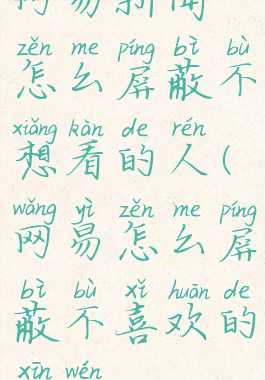 网易新闻
zěn me píng bì bù
怎么屏蔽不
xiǎng kàn de rén
想看的人(
wǎng yì zěn me píng
网易怎么屏
bì bù xǐ huān de
蔽不喜欢的
xīn wén